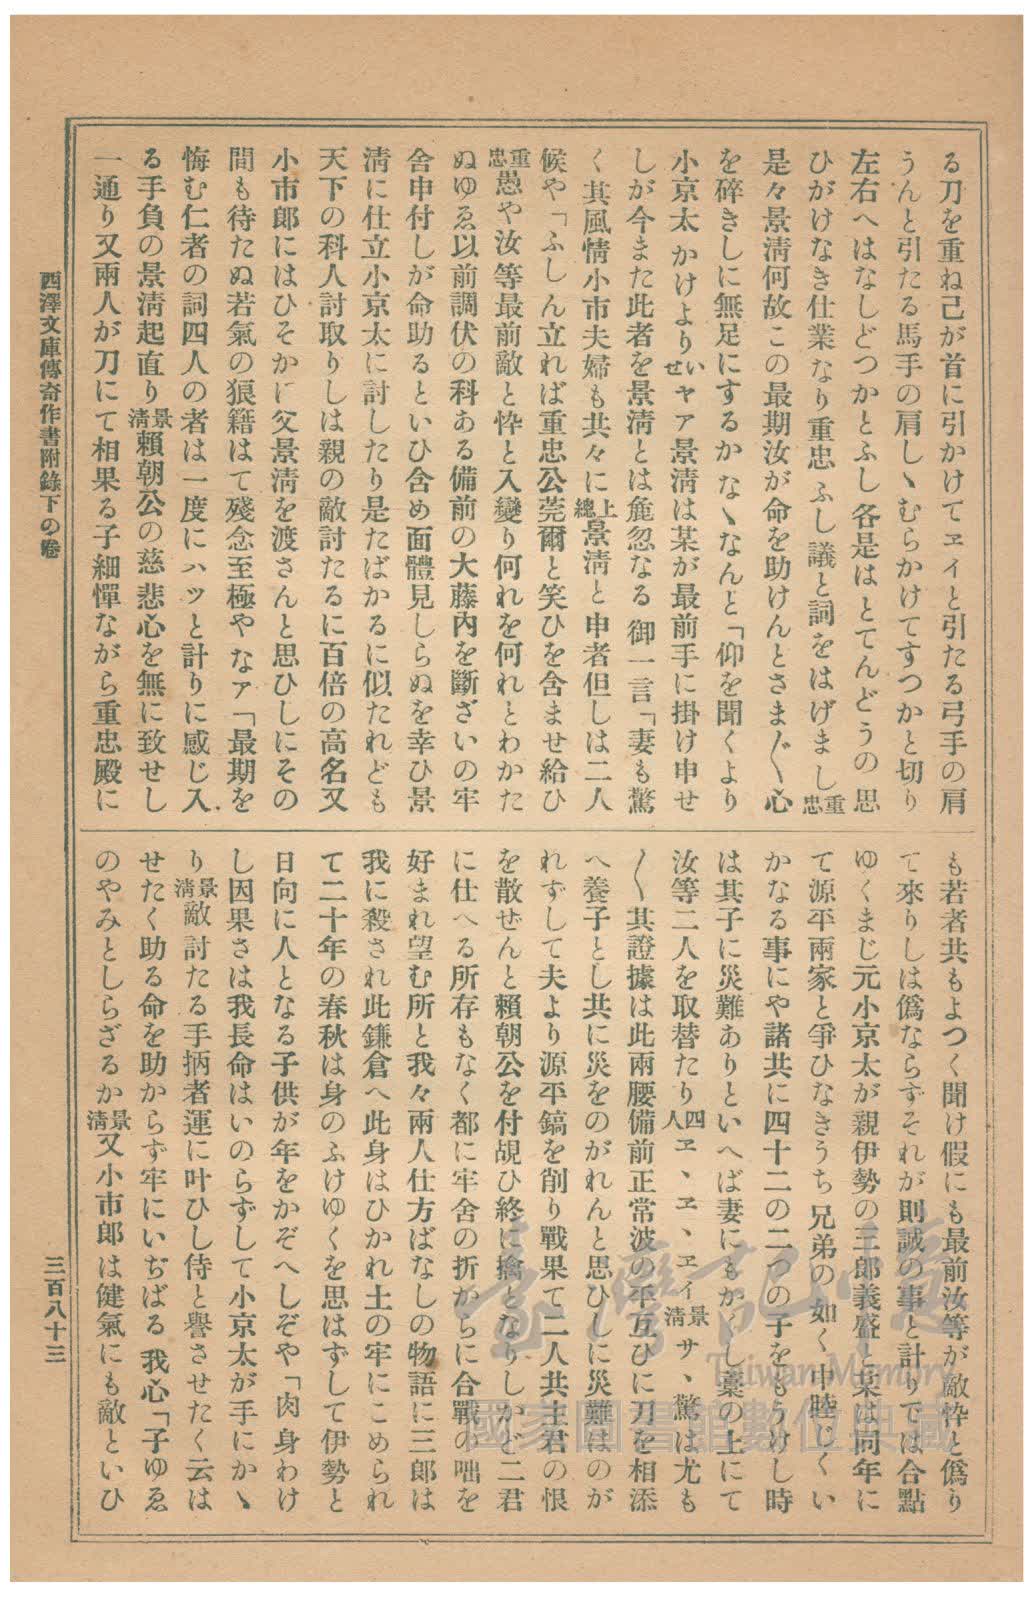 る刀を重ね己が首に引かけてヱイと引たる弓手の肩
うんと引たる馬手の肩しゝむらかけてすつかと切り
左右へはなしどつかとふし各是はとてんどうの思
ひがけなき仕業なり重忠ふし議と詞をはげまし重忠
是々景淸何故この最期汝が命を助けんとさま〴〵心
を碎きしに無足にするかなゝなんと「仰を聞くより
小京太かけよりせいヤァ景淸は某が最前手に掛け申せ
しが今また此者を景淸とは麁忽なる御一言「妻も驚
く其風情小市夫婦も共々に上總景淸と申者但しは二人
候や「ふしん立れば重忠公莞爾と笑ひを含ませ給ひ
重忠愚や汝等最前敵と忰と入變り何れを何れとわかた
ぬゆゑ以前調伏の科ある備前の大藤內を斷ざいの牢
舍申付しが命助るといひ含め面體見しらぬを幸ひ景
淸に仕立小京太に討したり是たばかるに似たれども
天下の科人討取りしは親の敵討たるに百倍の高名又
小市郞にはひそかに父景淸を渡さんと思ひしにその
間も待たぬ若氣の狼籍はて殘念至極やなァ「最期を
悔む仁者の詞四人の者は一度にハッと計りに感じ入
る手負の景淸起直り景淸賴朝公の慈悲心を無に致せし
一通り又兩人が刀にて相果る子細憚ながら重忠殿に
も若者共もよつく聞け假にも最前汝等が敵忰と僞り
て來りしは僞ならずそれが則誠の事と計りでは合點
ゆくまじ元小京太が親伊勢の三郞義盛と某は同年に
て源平兩家と爭ひなきうち兄弟の如く中睦じくい
かなる事にや諸共に四十二の二つの子をもうけし時
は其子に災難ありといへば妻にもかくし藁の上にて
汝等二人を取替たり四人ヱ、ヱ、ヱィ景淸サ、驚は尤も
〳〵其證據は此兩腰備前正常波の平互ひに刀を相添
へ養子とし共に災をのがれんと思ひしに災難はのが
れずして夫より源平鎬を削り戰果て二人共主君の恨
を散ぜんと賴朝公を付覘ひ終に擒となりしかど二君
に仕へる所存もなく都に牢舍の折からに合戰の咄を
好まれ望む所と我々兩人仕方ばなしの物語に三郞は
我に殺され此鎌倉へ此身はひかれ土の牢にこめられ
て二十年の春秋は身のふけゆくを思はずして伊勢と
日向に人となる子供が年をかぞへしぞや「肉身わけ
し因果さは我長命はいのらずして小京太が手にかゝ
り景淸敵討たる手抦者運に叶ひし侍と譽させたく云は
せたく助る命を助からず牢にいぢばる我心「子ゆゑ
のやみとしらざるか景淸又小市郞は健氣にも敵といひ
西澤文庫傳奇作書附錄下の卷
三百八十三
臺灣記憶
Taiwan Memory
國家圖書館數位典藏